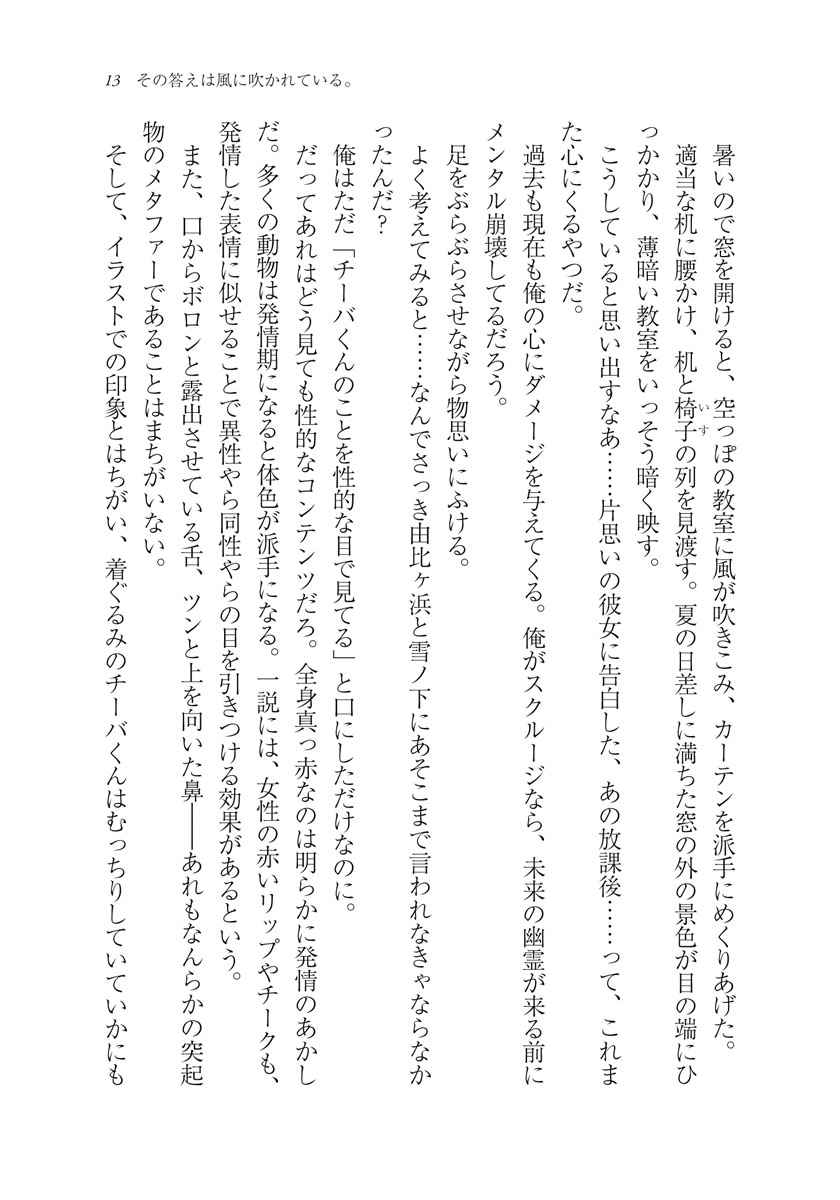 13 その答えは風に吹かれている。
暑いので窓を開けると、空っぽの教室に風が吹きこみ、カーテンを派手にめくりあげた。
適当な机に腰かけ、机と椅子の列を見渡す。夏の日差しに満ちた窓の外の景色が目の端にひ
いす
っかかり、薄暗い教室をいっそう暗く映す。
こうしていると思い出すなあ……片思いの彼女に告白した、あの放課後……って、これま
た心にくるやつだ。
過去も現在も俺の心にダメージを与えてくる。俺がスクルージなら、未来の幽霊が来る前に
メンタル崩壊してるだろう。
足をぶらぶらさせながら物思いにふける。
よく考えてみると……なんでさっき由比ヶ浜と雪ノ下にあそこまで言われなきゃならなか
ったんだ?
俺はただ「チーバくんのことを性的な目で見てる」と口にしただけなのに。
だってあれはどう見ても性的なコンテンツだろ。全身真っ赤なのは明らかに発情のあかし
だ。多くの動物は発情期になると体色が派手になる。一説には、女性の赤いリップやチークも、
発情した表情に似せることで異性やら同性やらの目を引きつける効果があるという。
また、口からボロンと露出させている舌、ツンと上を向いた鼻――あれもなんらかの突起
物のメタファーであることはまちがいない。
そして、イラストでの印象とはちがい、着ぐるみのチーバくんはむっちりしていていかにも